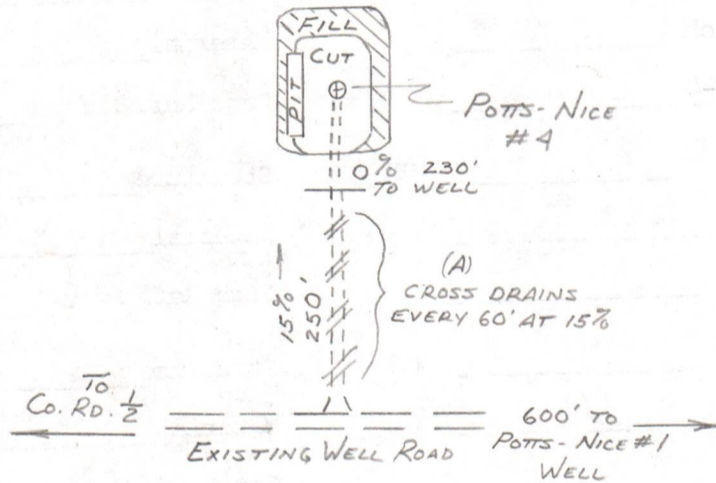 FILL
CUT
PIT
POTTS-NICE
#4
0% 230'
TO WELL
15%
250'
(A)
CROSS DRAINS
EVERY 60' AT 15%
TO
CO. RD. 1/2
EXISTING WELL ROAD
600' TO
POTTS-NICE #1
WELL